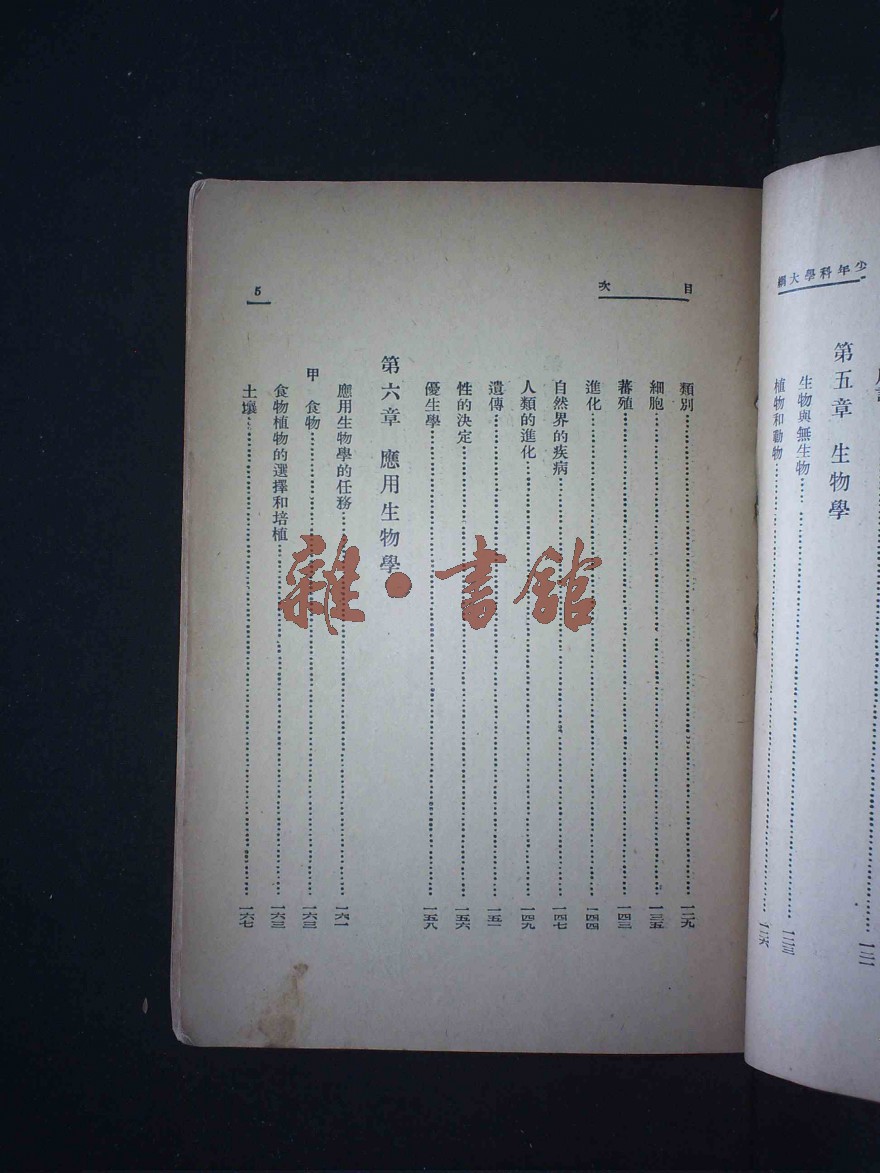 少年科學大綱
第五章 生物學
生物與無生物……一二三
植物和動物……一二六
目次
5
類別……一二九
細胞……一三五
蕃殖……一四三
進化……一四四
自然界的疾病……一四七
人類的進化……一四九
遺傳……一五一
性的決定……一五六
優生學……一五八
第六章 應用生物學
應用生物學的任務……一六一
甲 食物……一六三
食物植物的選擇和培植……一六三
土壤……一六七
雜·書館